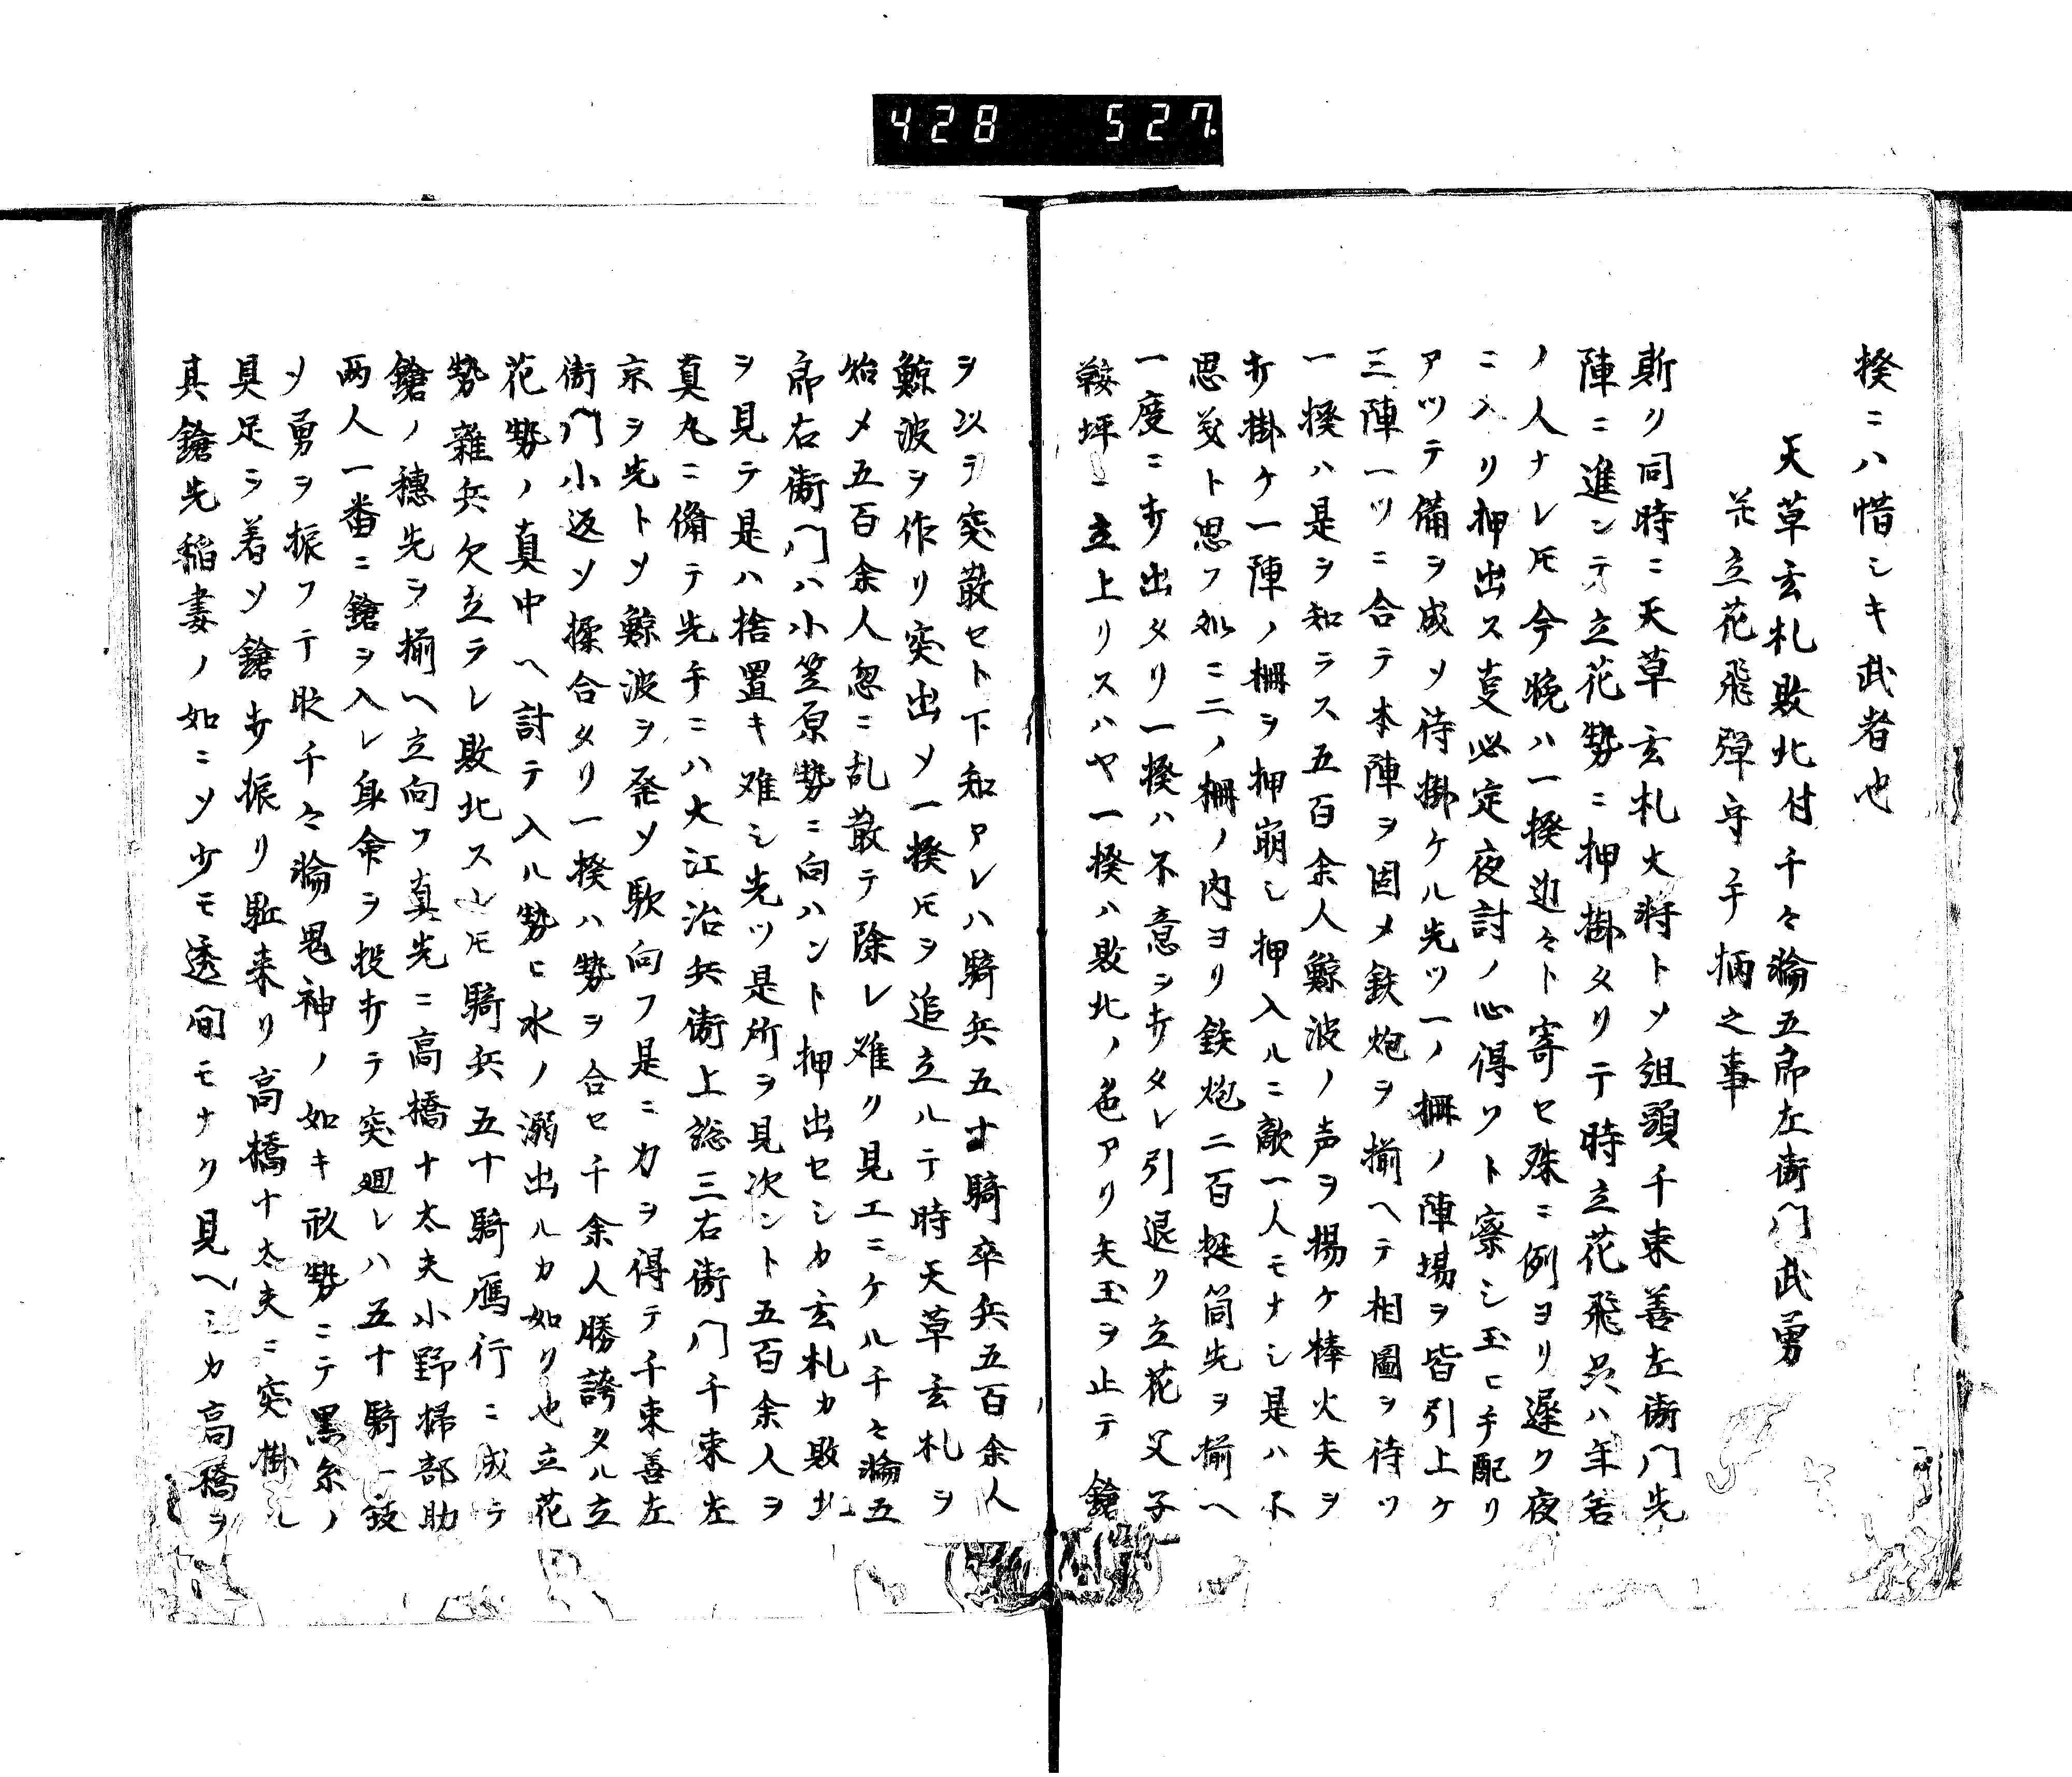 428 527
揆ニハ惜シキ武者也
天草玄札敗北付千々輪五郎左衛門武勇
并立花飛彈守手柄之事
斯リ同時ニ天草玄札大将トメ組頭千束善左衛門先
陣ニ進ンテ立花勢ニ押掛タリテ時立花飛呉ハ年若
ノ人ナレ𪜈今晩ハ一揆迯々ト寄セ殊ニ例ヨリ遅ク夜
ニ入リ押出ス叓必定夜討ノ心得ソト察シ玉ヒ手配リ
アツテ備ヲ成ソ待掛ケル先ツ一ノ柵ノ陣場ヲ皆引上ケ
三陣一ツニ合テ本陣ヲ固メ鉄炮ヲ揃ヘテ相圖ヲ待ツ
一揆ハ是ヲ知ラス五百余人鯨波ノ声ヲ揚ケ棒火矢ヲ
打掛ケ一陣ノ柵ヲ押崩シ押入ルニ敵一人モナシ是ハ不
思義ト思フ処ニ二ノ柵ノ内ヨリ鉄炮二百挺筒先ヲ揃ヘ
一度ニ打出タリ一揆ハ不意ヲ打タレ引退ク立花父子
鞍坪ニ立上リスハヤ一揆ハ敗北ノ色アリ矢玉ヲ止テ鎗
ヲ以テ突散セト下知アレハ騎兵五十騎卒兵五百余人
鯨波ヲ作リ突出メ一揆𪜈ヲ追立ルテ時天草玄札ヲ
始メ五百余人忽ニ乱散テ除レ難ク見エニケル千々輪五
郎右衛門ハ小笠原勢ニ向ハント押出セシカ玄札カ敗北
ヲ見テ是ハ捨置キ难シ先ツ是所ヲ見次ント五百余人ヲ
真丸ニ備テ先手ニハ大江治兵衛上総三右衛門千束左
京ヲ先トメ鯨波ヲ発ソ駆向フ是ニ力ヲ得テ千束善左
衛門小返ソ揉合タリ一揆ハ勢ヲ合セ千余人勝誇タル立
花勢ノ真中ヘ討テ入ル勢ヒ水ノ溺出ルカ如リ也立花
勢雑兵欠立ラレ敗北スレ𪜈騎兵五十騎鴈行ニ成テ
鎗ノ穗先ヲ揃ヘ立向フ真先ニ高橋十太夫小野掃部助
両人一番ニ鎗ヲ入レ身命ヲ投打テ突廻レハ五十騎一致
ソ勇ヲ振フテ戦千々輪鬼神ノ如キ敵勢ニテ黒糸ノ
具足ヲ着ソ鎗打振リ駈来リ高橋十太夫ニ突掛ル
真鎗先稲妻ノ如ニソ少モ透間モナク見ヘシカ高橋ヲ